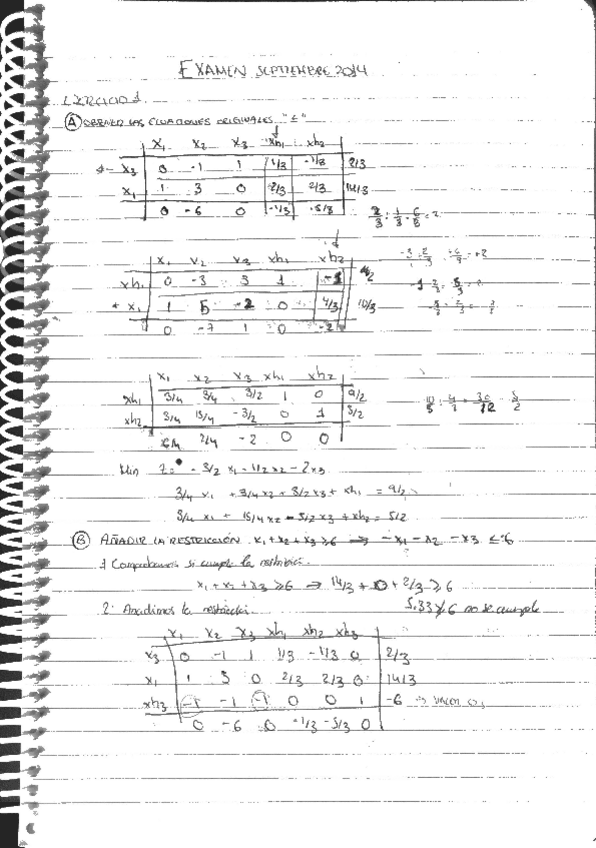 EXAMEN SEPTIEMBRE 2014
EJERCICIO 1
A OBTENER LAS ECUACIONES ORIGINALES "≤"
x₁ x₂ x₃ xh₁ xh₂
x₃ 0 -1 1 1/3 -1/3 2/3
x₁ 1 3 0 2/3 2/3 14/3
0 -6 0 -1/3 -5/3
x₁ x₂ x₃ xh₁ xh₂
xh₁ 0 -3 3 1 -1
x₁ 1 5 -2 0 4/3 10/3
0 -7 1 0 -2
x₁ x₂ x₃ xh₁ xh₂
xh₁ 3/4 3/4 3/2 1 0 9/2
xh₂ 3/4 15/4 -3/2 0 1 5/2
-2 0 0
Min Z= - 3/2 x₁ - 11/2 x₂ - 2x₃
3/4 x₁ + 3/4 x₂ + 3/2 x₃ + xh₁ = 9/2
3/4 x₁ + 15/4 x₂ - 3/2 x₃ + xh₂ = 5/2
B AÑADIR LA RESTRICCIÓN x₁ + x₂ + x₃ ≥ 6 → -x₁ - x₂ - x₃ ≤ -6
1 Comprobamos si cumple la restricción.
x₁ + x₂ + x₃ ≥ 6 ⇒ 14/3 + 0 + 2/3 ≥ 6
5.33 ≱ 6 no se cumple
2. Añadimos la restricción.
x₁ x₂ x₃ xh₁ xh₂ xh₃
x₃ 0 -1 1 1/3 -1/3 0 2/3
x₁ 1 3 0 2/3 2/3 0 14/3
xh₃ -1 -1 -1 0 0 1 -6
0 -6 0 -1/3 -5/3 0